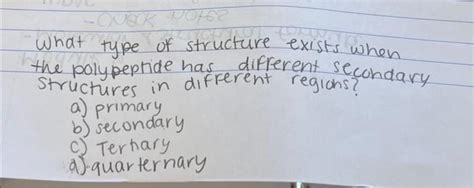 What type of structure exists when
the polypeptide has different secondary
structures in different regions?
a) primary
b) secondary
c) Tertiary
d) quarternary